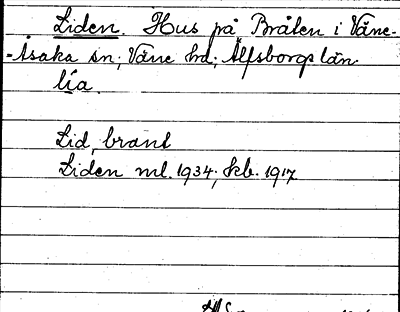 Liden. Hus på Bråten i Väne-
-Åsaka sn; Väne hd; Älfsborgs län
lía.
Lid, brant
Liden ml. 1934; kb. 1917